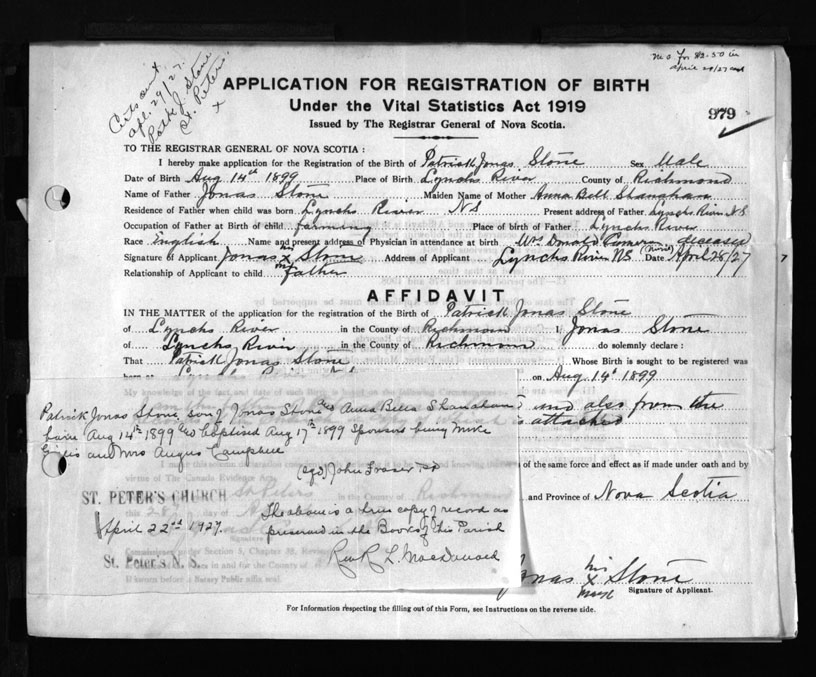 Certs out
apl. 29/27.
Patk J. Stone
St. Peters.
X
M.O. for $2.50 in
April 29/27
APPLICATION FOR REGISTRATION OF BIRTH
Under the Vital Statistics Act 1919
Issued by The Registrar General of Nova Scotia.
979
TO THE REGISTRAR GENERAL OF NOVA SCOTIA :
I hereby make application for the Registration of the Birth of Patrick Jonas Stone Sex Male
Date of Birth Aug 14th 1899 Place of Birth Lynchs River County of Richmond
Name of Father Jonas Stone Maiden Name of Mother Anna Bell Shanahan
Residence of Father when child was born Lynchs River NS Present address of Father Lynchs River N.S
Occupation of Father at Birth of child farming Place of birth of Father Lynchs River
Race English Name and present address of Physician in attendance at birth Mrs Donald Cameron deceased (nurse)
Signature of Applicant Jonas his X mark Stone Address of Applicant Lynchs River NS Date April 28/27
Relationship of Applicant to child Father
AFFIDAVIT
IN THE MATTER of the application for the registration of the Birth of Patrick Jonas Stone
of Lynchs River in the County of Richmond I, Jonas Stone
of Lynchs River in the County of Richmond do solemnly declare :
That Patrick Jonas Stone Whose Birth is sought to be registered was
born at Lynchs on Aug. 14th 1899
Patrick Jonas Stone, son of Jonas Stone and Anna Bella Shanahan
born Aug 14th 1899 and baptised Aug 17th 1899 Sponsors being Mike
and Mrs Angus Campbell
(sgd) John Fraser P.P.
and also from the
attached
of the same force and effect as if made under oath and by
and Province of Nova Scotia
ST. PETER'S CHURCH
April 22nd 1927.
St. Peter's N. S.
The above is a true copy of record as
preserved in the Books of this Parish
Rev R. L. Macdonald
Jonas his X mark Stone
Signature of Applicant.
For Information respecting the filling out of this Form, see Instructions on the reverse side.